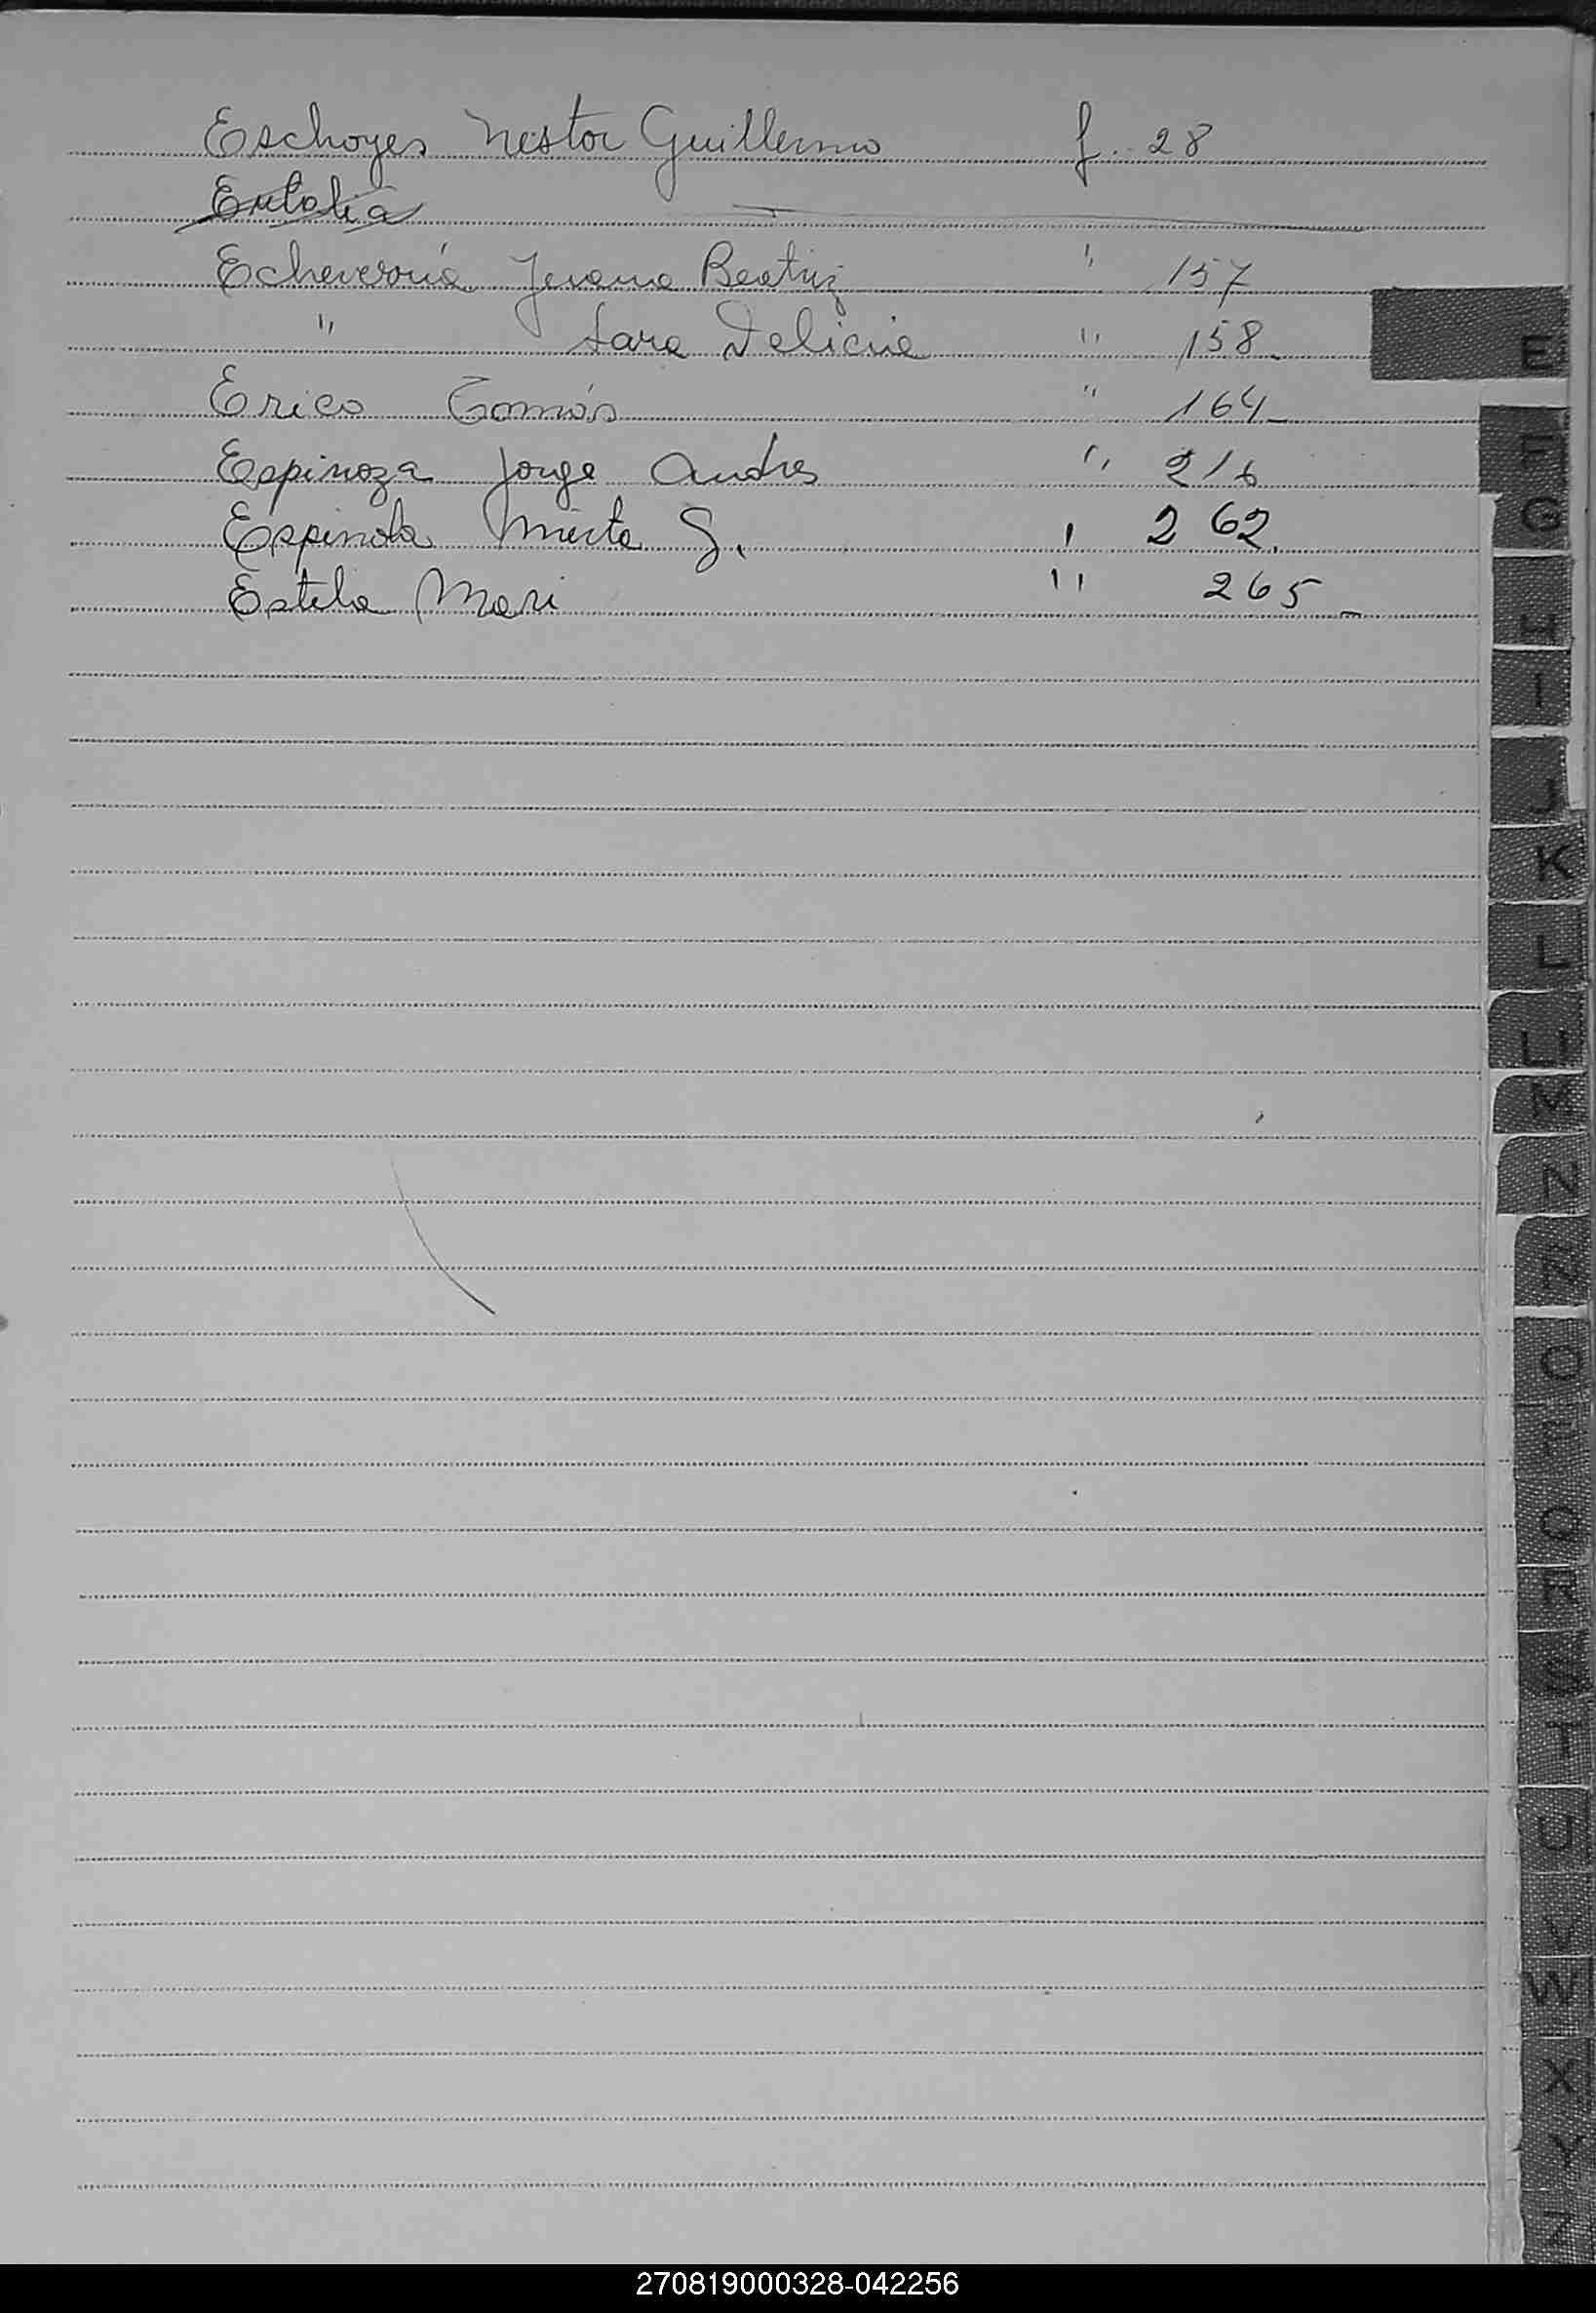 Eschoyes Nestor Guillermo f. 28
Eulalia
Echeverría Juana Beatriz " 157
" Sara Delicia " 158.
Erico Tomás " 164
Espinoza Jorge Andres " 216
Espinola Mirta G. " 262.
Estela Mari " 265
E
F
G
H
I
J
K
L
LL
M
N
Ñ
O
P
Q
R
S
T
U
V
W
X
Y
Z
270819000328-042256